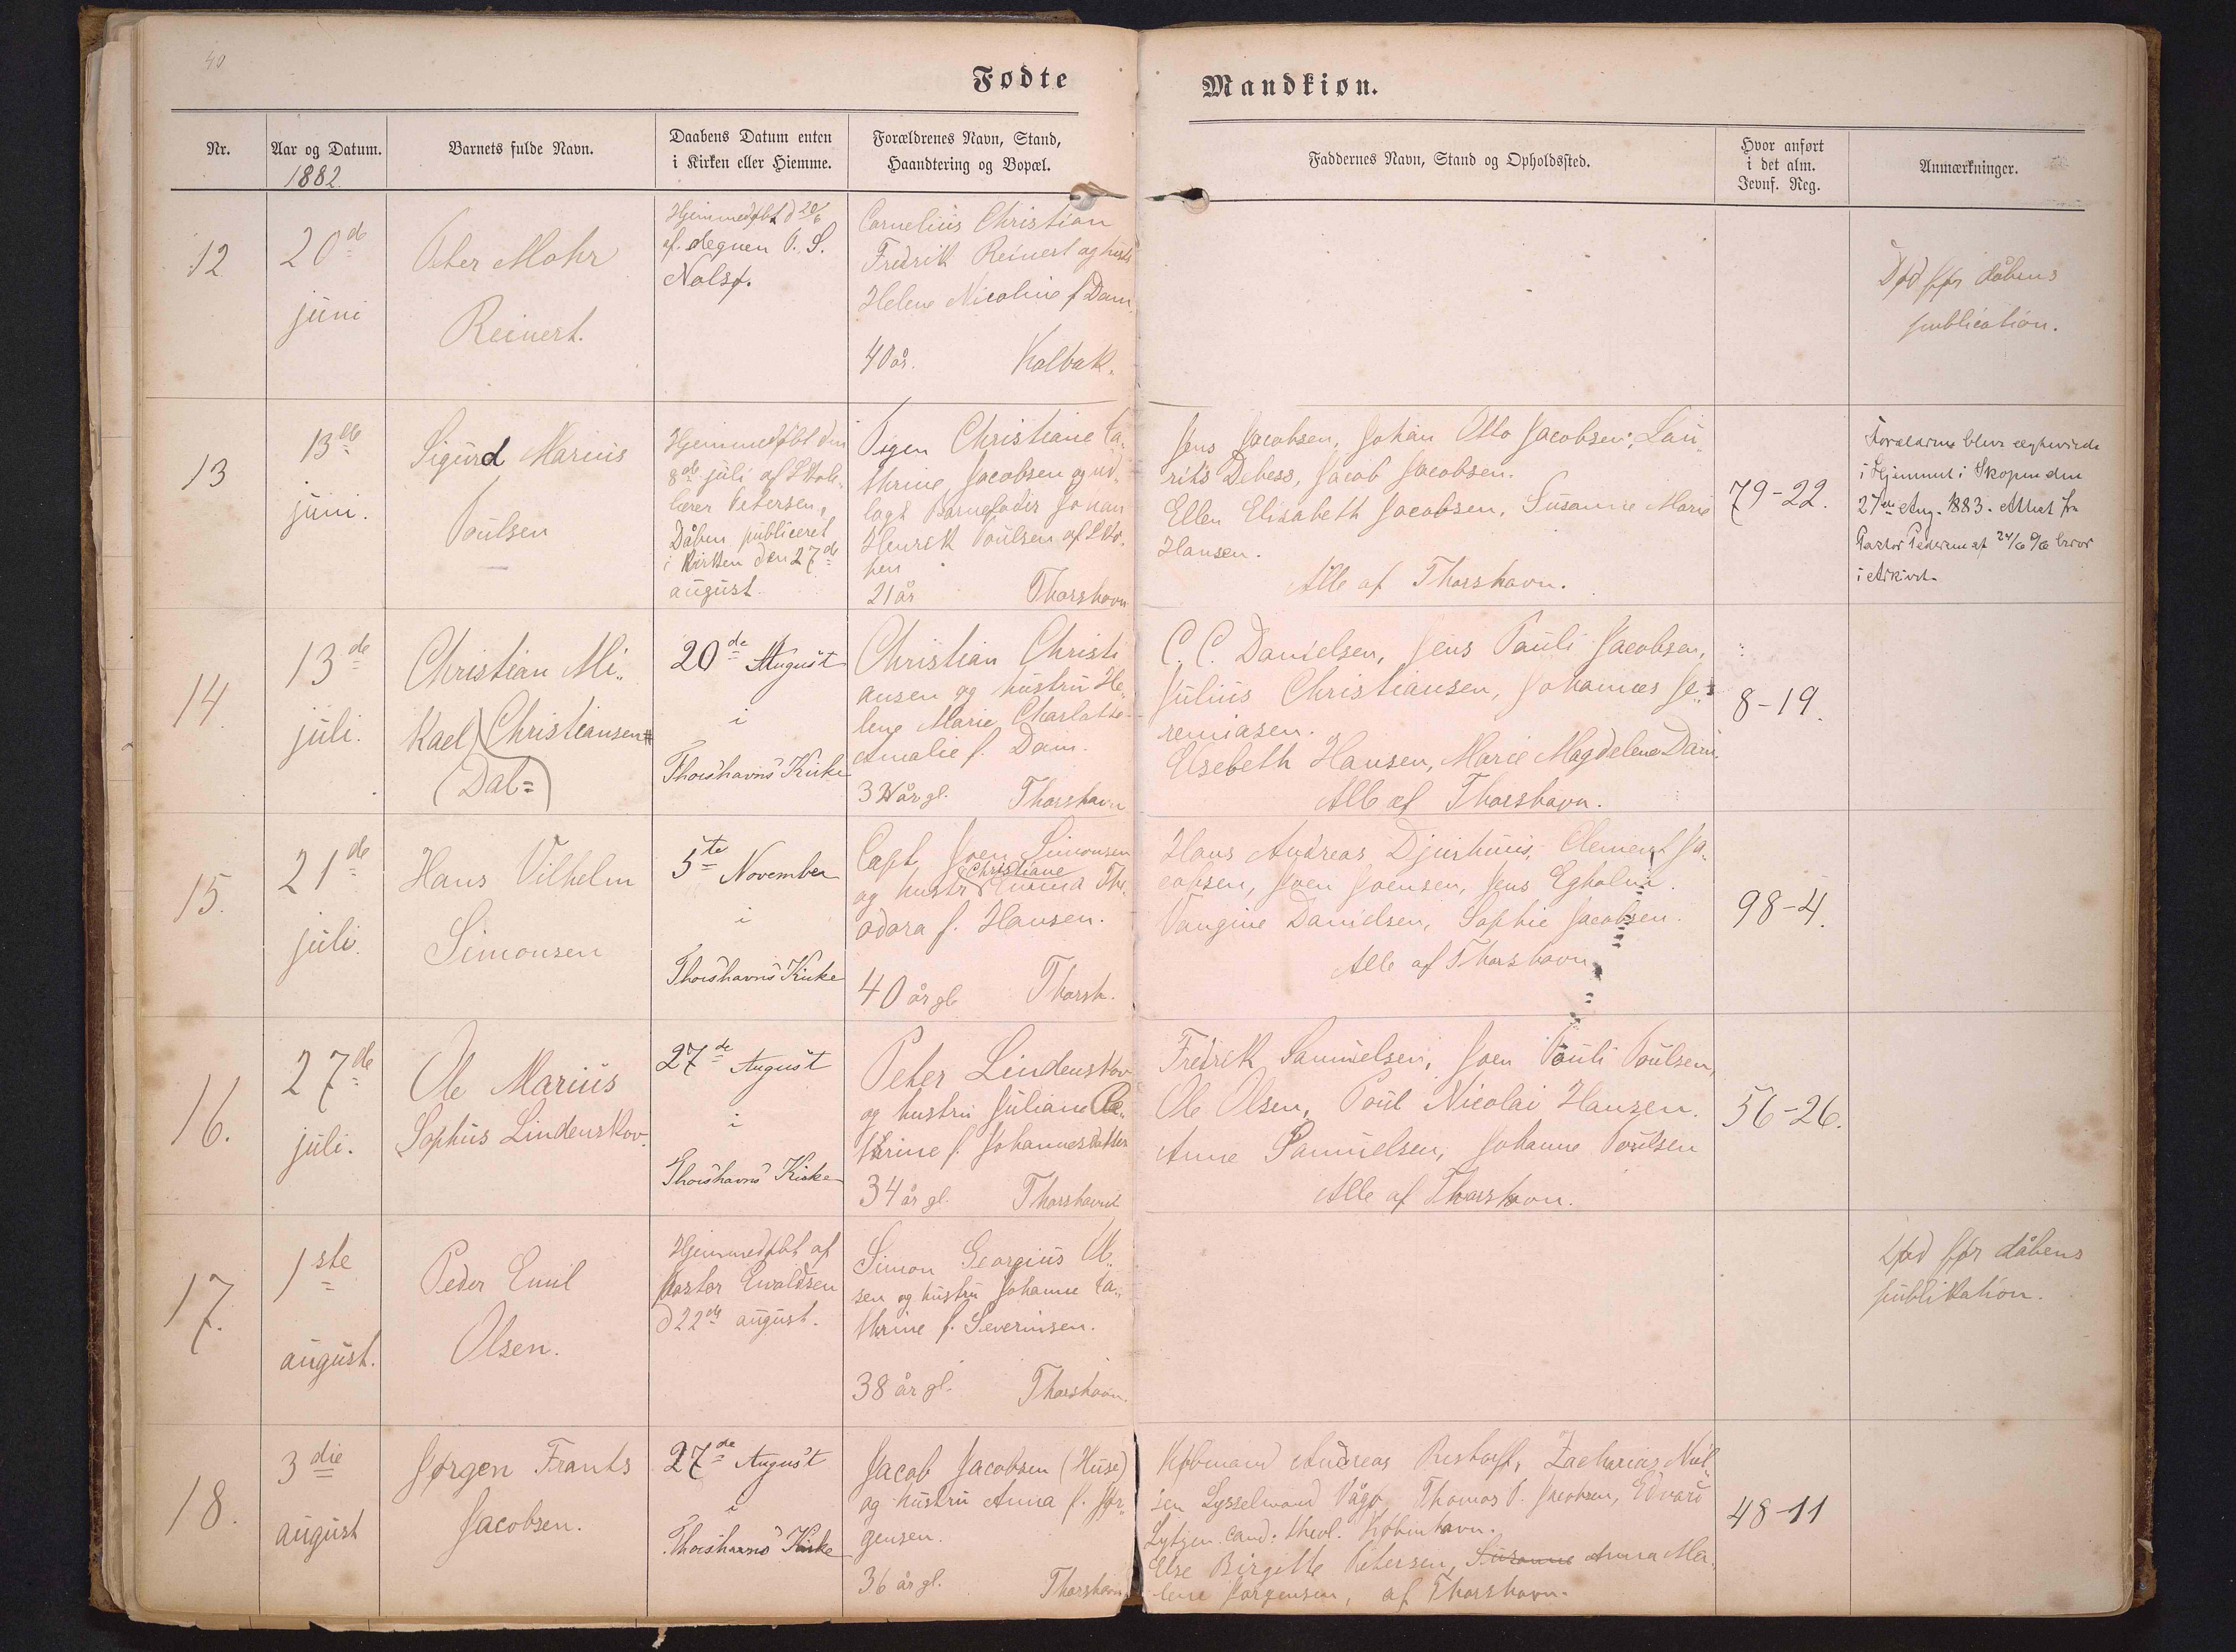 40
Fødte
Mandkiøn.
Nr.
Aar og Datum.
1882.
Barnets fulde Navn.
Daabens Datum enten
i Kirken eller Hiemme.
Forældrenes Navn, Stand,
Haandtering og Bopæl.
Faddernes Navn, Stand og Opholdssted.
Hvor anført
i det alm.
Jevnf. Reg.
Anmærkninger.
12
20de
juni
Peter Mohr
Reinert.
Hjemmedøbt d 20/6
af degnen O. S.
Nolsø.
Cornelius Christian
Fredrik Reinert og hustr
Helene Nicoline f Dam
40 år. Kalbak.
Død før dåbens
publication.
13
13de
juni.
Sigurd Marius
Poulsen
Hjemmedøbt den
8de juli af Skole-
lærer Petersen,
Dåben publiceret
i Kirken den 27de
august.
Pigen Christiane Ca-
thrine Jacobsen og ud-
lagt Barnefader Johan
Henrik Poulsen af Sko-
pen
21 år Thorshavn
Jens Jacobsen, Johan Otto Jacobsen, Lau-
rits Debess, Jacob Jacobsen.
Ellen Elisabeth Jacobsen, Susanne Marie
Hansen.
Alle af Thorshavn.
79-22.
Forældrene bleve ægteviede
i Hjemmet i Skopen den
27de Aug. 1883. Attest fra
Pastor Pedersen af 24/6 06 beror
i Arkivet.
14.
13de
juli.
Christian Mi-
kael Christiansen
(Dal=)
20de August
i
Thorshavns Kirke
Christian Christi
ansen og hustru He-
lene Marie Charlotte
Amalie f. Dam.
32 år gl. Thorshavn
C. C. Danielsen, Jens Pauli Jacobsen,
Julius Christiansen, Johannes Je-
remiasen.
Elsebeth Hansen, Marie Magdelene Dam.
Alle af Thorshavn.
8-19.
15.
21de
juli.
Hans Vilhelm
Simonsen
5te November
i
Thorshavns Kirke
Capt. Joen Simonsen
og hustr Christiane Emma The-
odora f. Hansen.
40 år gl Thorsh.
Hans Andreas Djurhuus, Clement Ja-
cobsen, Joen Joensen, Jens Egholm.
Vangine Danielsen, Sophie Jacobsen.
Alle af Thorshavn
98-4.
16.
27de
juli.
Ole Marius
Sophus Lindenskov.
27de August
i
Thorshavns Kirke
Peter Lindenskov
og hustru Juliane Ca-
thrine f. Johannesdatter
34 år gl. Thorshavn
Fredrik Samuelsen, Joen Pauli Poulsen,
Ole Olsen, Poul Nicolai Hansen.
Anne Samuelsen, Johanne Poulsen
Alle af Thorshavn.
56-26.
17.
1ste
august.
Peder Emil
Olsen.
Hjemmedøbt af
Pastor Evaldsen
d 22de august.
Simon Georgius Ol-
sen og hustru Johanne Ca-
thrine f. Severinsen.
38 år gl. Thorshavn.
Død før dåbens
publikation.
18.
3die
august
Jørgen Frants
Jacobsen.
27de August
i
Thorshavns Kirke
Jacob Jacobsen (Huse)
og hustru Anna f. Jør-
gensen.
36 år gl. Thorshavn
Købmand Andreas Restorff, Zacharias Niel
sen Sysselmand Vågø, Thomas P. Jacobsen, Edvard
Lytzen cand. theol. København.
Else Birgitte Petersen, Susanne Anna Ma-
lene Jørgensen, af Thorshavn.
48-11